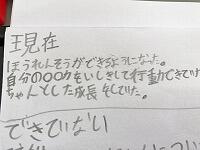 現在
ほうれんそうができるようになった。
自分の〇〇力をいしきして行動できていた
ちゃんとした成長をしていた。
できていない